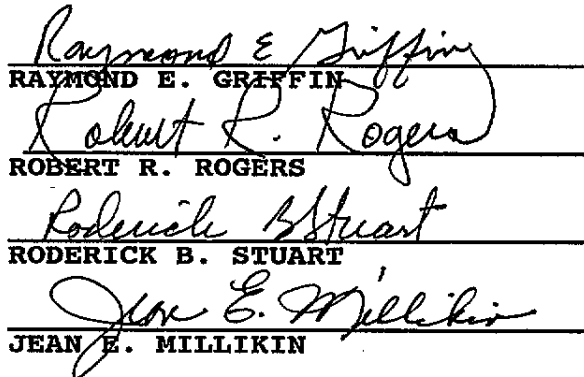 Raymond E Griffin
RAYMOND E. GRIFFIN
Robert R. Rogers
ROBERT R. ROGERS
Roderick B Stuart
RODERICK B. STUART
Jean E. Millikin
JEAN E. MILLIKIN